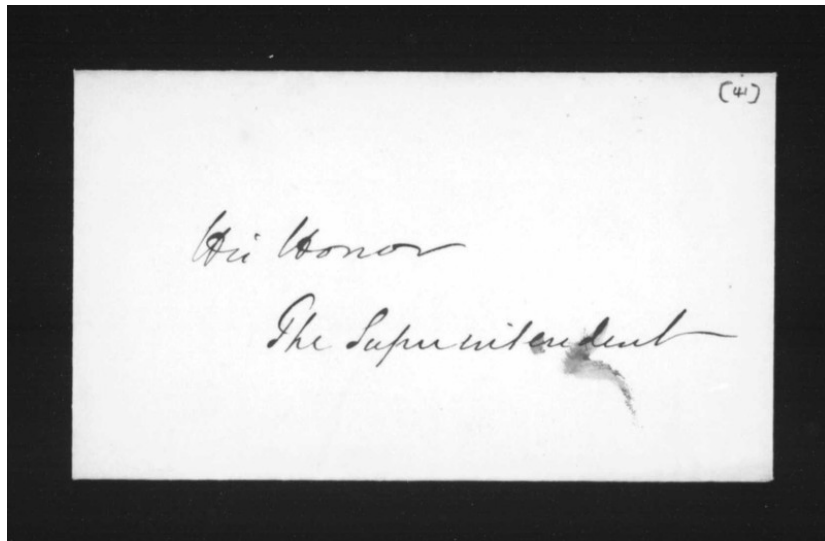 His Honor
The Superintendent